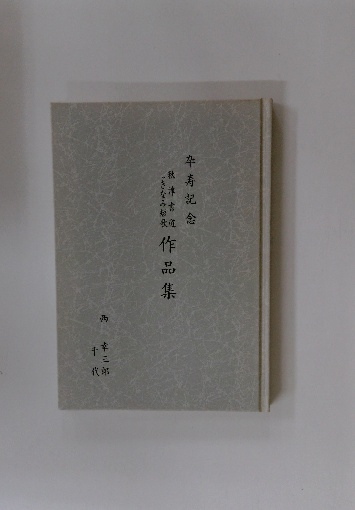 卒寿記念
秋津書道
つきなみ短歌
作品集
西 幸三郎
千代